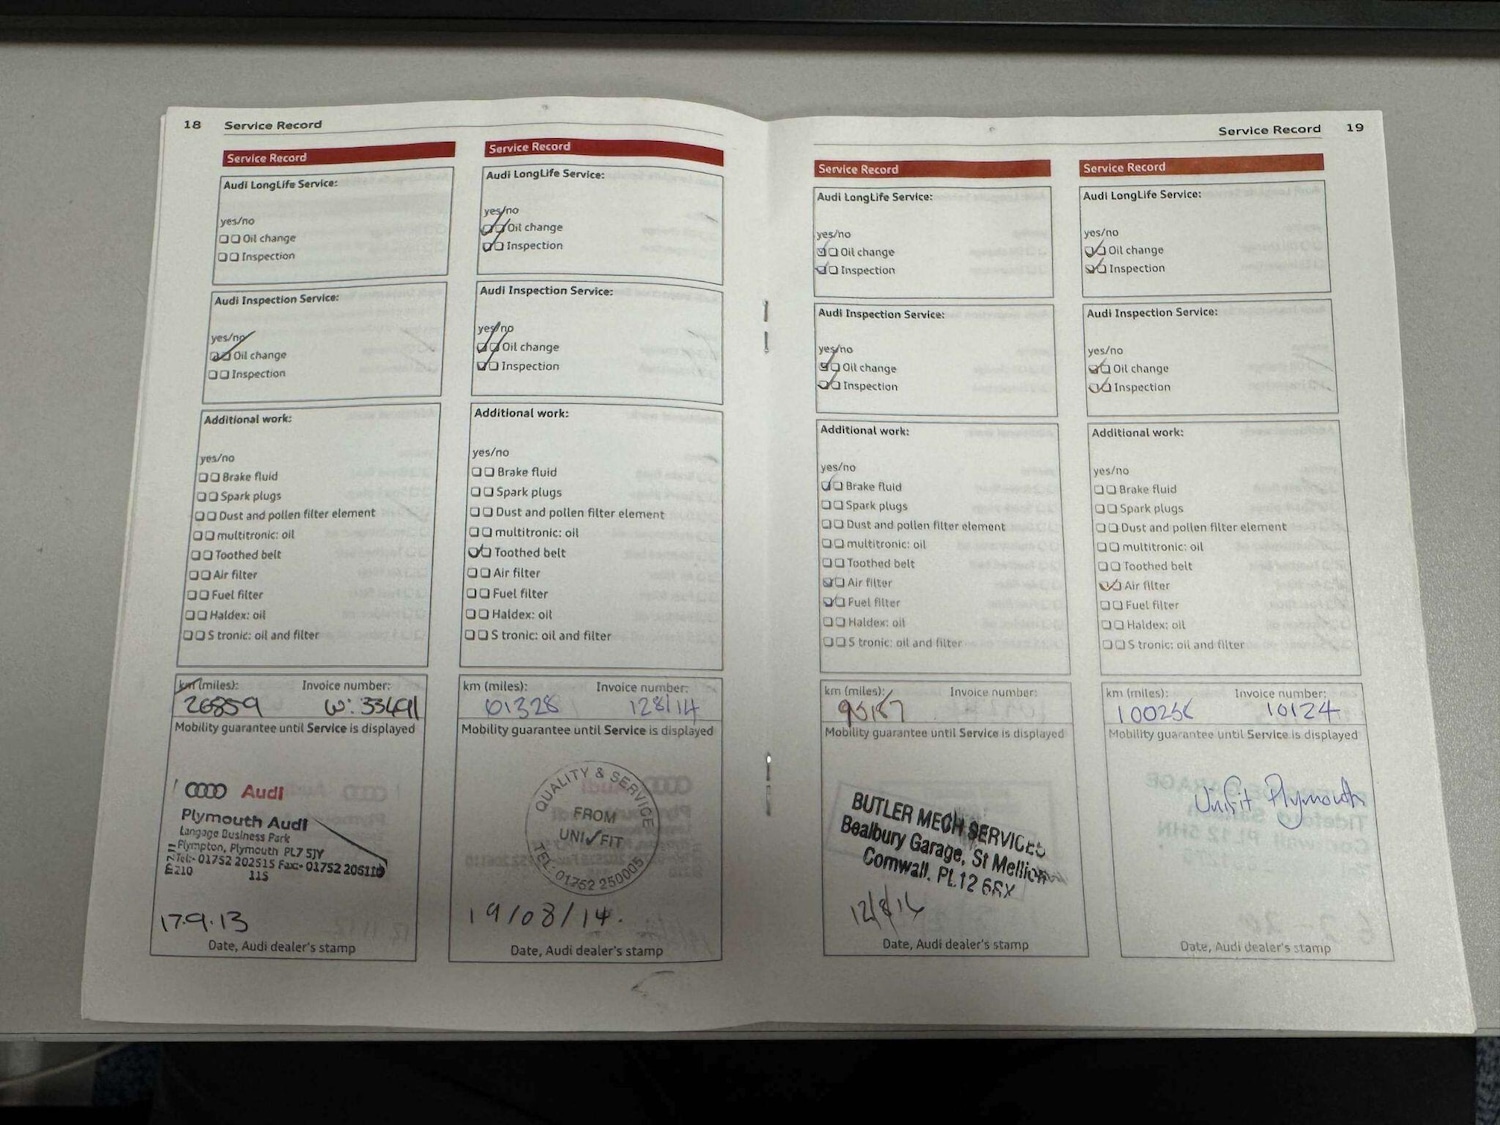 18 Service Record
Service Record
Audi LongLife Service:
yes/no
Oil change
Inspection
Audi Inspection Service:
yes/no
Oil change
Inspection
Additional work:
yes/no
Brake fluid
Spark plugs
Dust and pollen filter element
multitronic: oil
Toothed belt
Air filter
Fuel filter
Haldex: oil
S tronic: oil and filter
km (miles): Invoice number:
26859 33491
Mobility guarantee until Service is displayed
Audi
Plymouth Audi
Langage Business Park
Plympton, Plymouth PL7 5JY
Tel:- 01752 202515 Fax:- 01752 205110
115
17.9.13
Date, Audi dealer's stamp
Service Record
Audi LongLife Service:
yes/no
Oil change
Inspection
Audi Inspection Service:
yes/no
Oil change
Inspection
Additional work:
yes/no
Brake fluid
Spark plugs
Dust and pollen filter element
multitronic: oil
Toothed belt
Air filter
Fuel filter
Haldex: oil
S tronic: oil and filter
km (miles): Invoice number:
61328 128/14
Mobility guarantee until Service is displayed
QUALITY & SERVICE
FROM
UNI✓FIT
TEL: 01752 250005
19/08/14.
Date, Audi dealer's stamp
Service Record 19
Service Record
Audi LongLife Service:
yes/no
Oil change
Inspection
Audi Inspection Service:
yes/no
Oil change
Inspection
Additional work:
yes/no
Brake fluid
Spark plugs
Dust and pollen filter element
multitronic: oil
Toothed belt
Air filter
Fuel filter
Haldex: oil
S tronic: oil and filter
km (miles): Invoice number:
Mobility guarantee until Service is displayed
BUTLER MECH SERVICES
Bealbury Garage, St Mellion
Cornwall. PL12 6RX
12/8/16
Date, Audi dealer's stamp
Service Record
Audi LongLife Service:
yes/no
Oil change
Inspection
Audi Inspection Service:
yes/no
Oil change
Inspection
Additional work:
yes/no
Brake fluid
Spark plugs
Dust and pollen filter element
multitronic: oil
Toothed belt
Air filter
Fuel filter
Haldex: oil
S tronic: oil and filter
km (miles): Invoice number:
10124
Mobility guarantee until Service is displayed
Unifit Plymouth
Date, Audi dealer's stamp